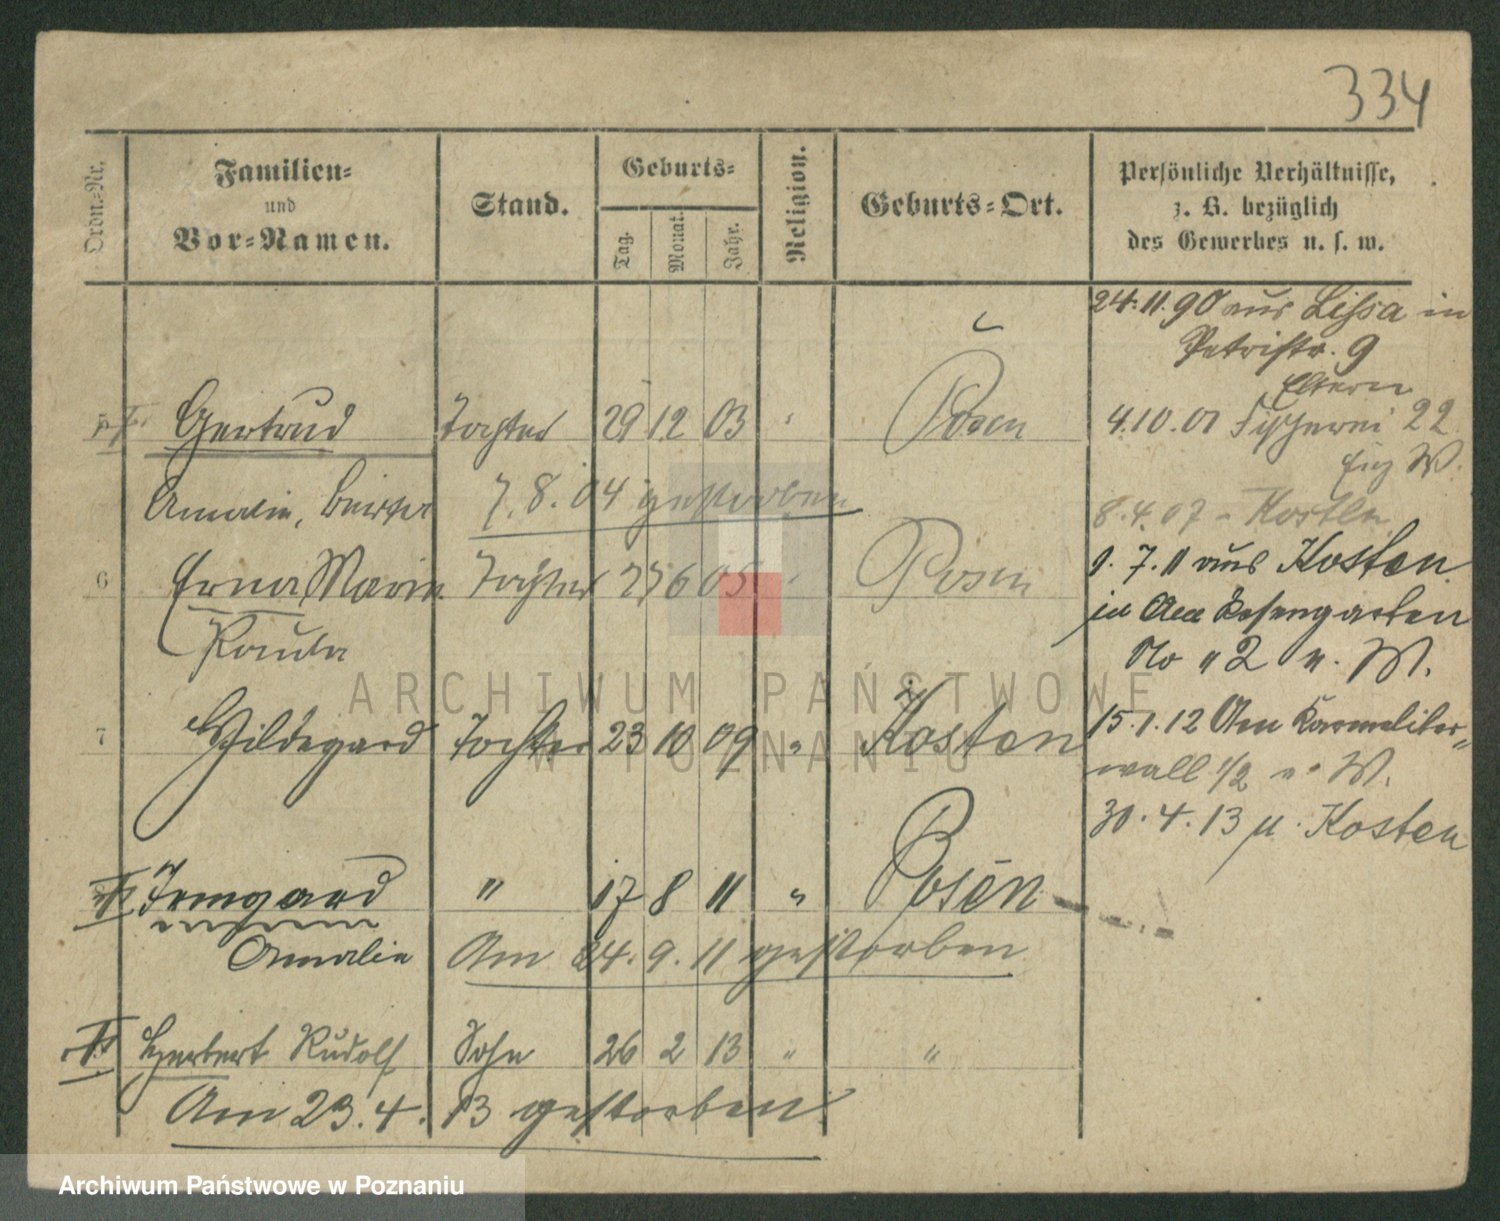 334
Ordn.-Nr.
Familien- und Vor-Namen.
Stand.
Geburts-
Tag.
Monat.
Jahr.
Religion.
Geburts-Ort.
Persönliche Verhältnisse, z. B. bezüglich des Gewerbes u. s. w.
24.11.90 aus Lissa in
Petristr. 9
Eltern
5 Gertrud Tochter 29 12 03 Posen
4.10.01 Fischerei 22
W.
Amalie, 7.8.04 gestorben
8.4.07 - Kosten
6 Erna Marie Tochter 27 6 05 Posen
1.7.11 aus Kosten
in Am Rosengarten
Paula
No 2 W.
7 Hildegard Tochter 23 10 09 " Kosten
15.1.12 Am Karmeliter-
wall 1/2 W.
30.4.13 Kosten
Irmgard " 17 8 11 " Posen
Amalie Am 24.9.11 gestorben
Herbert Rudolf Sohn 26 2 13 " "
Am 23.4.13 gestorben
ARCHIWUM PAŃSTWOWE
W POZNANIU
Archiwum Państwowe w Poznaniu